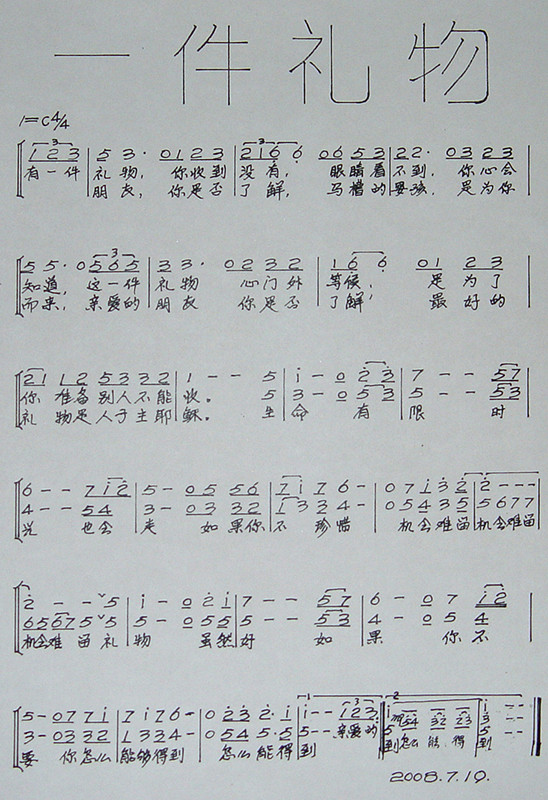 一件礼物
1=C4/4
3 3
1 2 3 | 5 3· 0 1 2 3 | 2 1 6 6 0 6 5 3 | 2 2· 0 3 2 3 |
有一件 礼物， 你收到 没有， 眼睛看不到， 你心会
朋友， 你是否 了解， 马槽的婴孩， 是为你
3
5 5· 0 5 6 5 | 3 3· 0 2 3 2 | 1 6 6 0 1 2 3 |
知道， 这一件 礼物 心门外 等候， 是为了
而来， 亲爱的 朋友 你是否 了解， 最好的
2 1 1 2 5 3 3 2 | 1 - - 5 | i - 0 2 3 | 7 - - 5 7 |
5 | 3 - 0 5 3 | 5 - - 5 3 |
你 准备别人不能 收。
礼 物是人子主耶 稣。 生 命 有 限 时
6 - - 7 i 2 | 5 - 0 5 5 6 | 7 i 7 6 - | 0 7 i 3 2 | 2 - - - |
4 - - 5 4 | 3 - 0 3 3 2 | 1 3 3 4 - | 0 5 4 3 5 | 5 6 7 7 |
光 也会 走 如果你 不 珍惜 机会难留 机会难留
2 - - ˇ5 | i - 0 2 i | 7 - - 5 7 | 6 - 0 7 i 2 |
6 5 6 7 5 ˇ5 | 5 - 0 5 5 | 5 - - 5 3 | 4 - 0 5 4 |
机会难 留 礼 物 虽然 好 如 果 你 不
1 3 2
5 - 0 7 7 i | 7 i 7 6 - | 0 2 3 2· i | i - - i 2 3 | i - - |
3 - 0 3 3 2 | 1 3 3 4 - | 0 5 4 5· 5 | 5 - - 5 4 3 2 2 3 | 3 - - |
要 你怎么 能够得到 怎么能得 到 亲爱的 到怎么 能 得 到
2008.7.19.